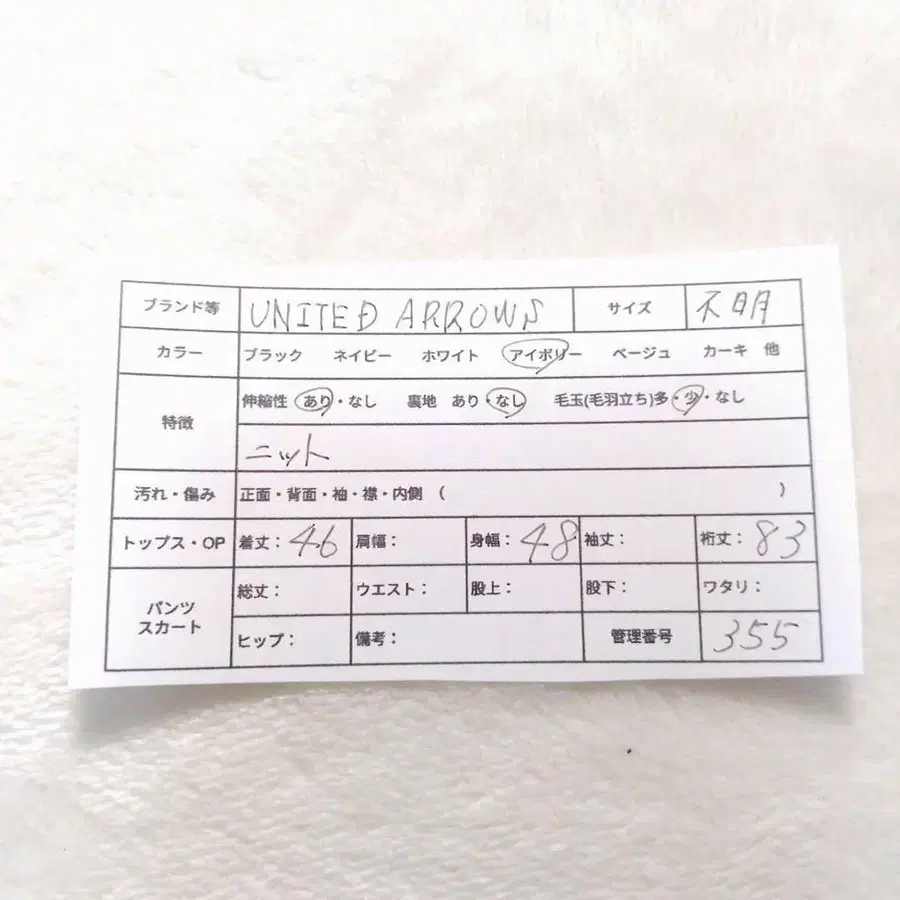 ブランド等 UNITED ARROWS サイズ 不明
カラー ブラック ネイビー ホワイト アイボリー ベージュ カーキ 他
特徴 伸縮性 あり・なし 裏地 あり・なし 毛玉(毛羽立ち)多・少・なし
ニット
汚れ・傷み 正面・背面・袖・襟・内側 ( )
トップス・OP 着丈: 46 肩幅: 身幅: 48 袖丈: 裄丈: 83
パンツ スカート 総丈: ウエスト: 股上: 股下: ワタリ:
ヒップ: 備考: 管理番号 355